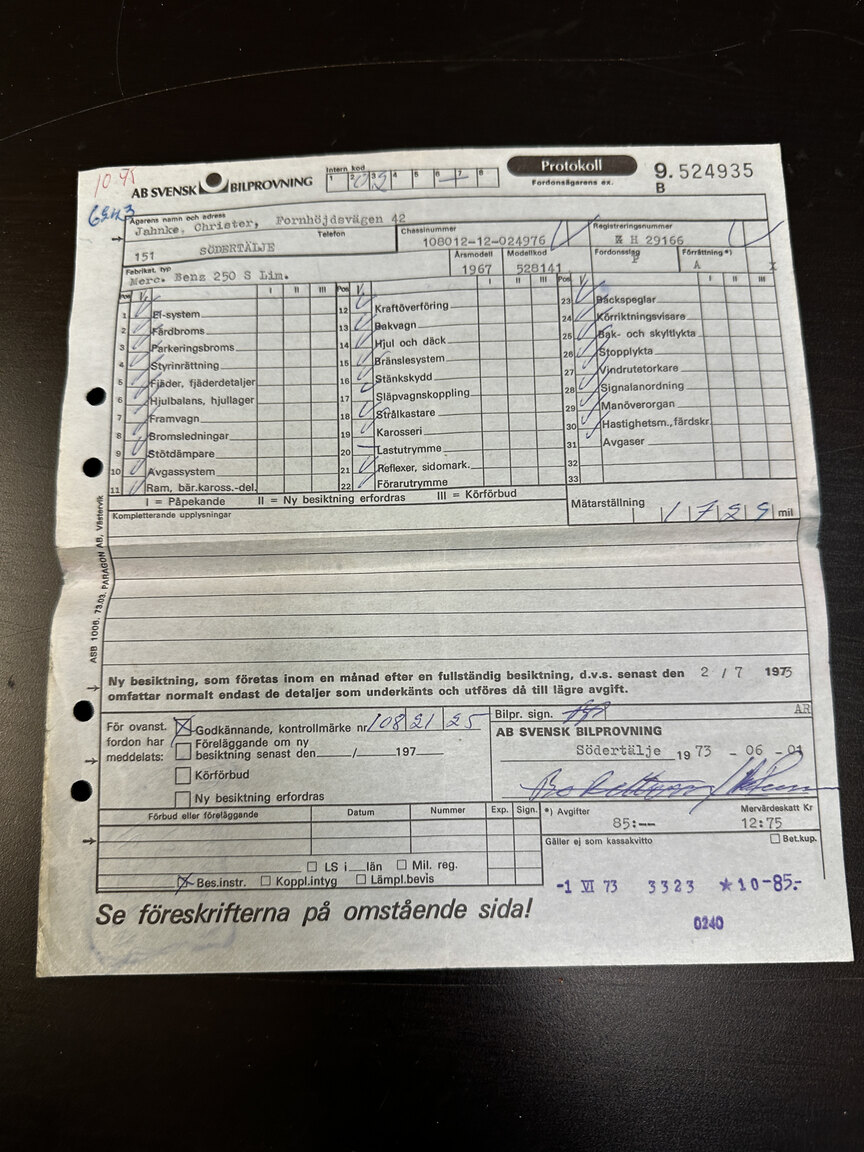 10-95
AB SVENSK BILPROVNING
Intern kod
1 2 3 4 5 6 7 8
Protokoll
Fordonsägarens ex.
9. 524935
B
Ägarens namn och adress
Jahnke, Christer, Fornhöjdsvägen 42
Telefon
151 SÖDERTÄLJE
Chassinummer
108012-12-024976
Registreringsnummer
H 29166
Fabrikat, typ
Merc. Benz 250 S Lim.
Årsmodell
1967
Modellkod
528141
Fordonsslag
P
Förrättning *)
A
Pos V. I II III Pos V. I II III Pos V. I II III
1 El-system
2 Färdbroms
3 Parkeringsbroms
4 Styrinrättning
5 Fjäder, fjäderdetaljer
6 Hjulbalans, hjullager
7 Framvagn
8 Bromsledningar
9 Stötdämpare
10 Avgassystem
11 Ram, bär.kaross.-del.
12 Kraftöverföring
13 Bakvagn
14 Hjul och däck
15 Bränslesystem
16 Stänkskydd
17 Släpvagnskoppling
18 Strålkastare
19 Karosseri
20 Lastutrymme
21 Reflexer, sidomark.
22 Förarutrymme
23 Backspeglar
24 Körriktningsvisare
25 Bak- och skyltlykta
26 Stopplykta
27 Vindrutetorkare
28 Signalanordning
29 Manöverorgan
30 Hastighetsm., färdskr.
31 Avgaser
32
33
I = Påpekande II = Ny besiktning erfordras III = Körförbud
Kompletterande upplysningar
Mätarställning
1729 mil
ASB 1006. 73.03. PARAGON AB, Västervik
Ny besiktning, som företas inom en månad efter en fullständig besiktning, d.v.s. senast den 2 / 7 1973
omfattar normalt endast de detaljer som underkänts och utföres då till lägre avgift.
För ovanst. fordon har meddelats:
X Godkännande, kontrollmärke nr 108 21 25
Föreläggande om ny
besiktning senast den / 197
Körförbud
Ny besiktning erfordras
Bilpr. sign.
AR
AB SVENSK BILPROVNING
Södertälje 1973 - 06 - 01
Förbud eller föreläggande Datum Nummer Exp. Sign.
*) Avgifter
85:--
Mervärdeskatt Kr
12:75
Gäller ej som kassakvitto
Bet.kup.
LS i län Mil. reg.
X Bes.instr. Koppl.intyg Lämpl.bevis
-1 VI 73 3323 *10-85.-
0240
Se föreskrifterna på omstående sida!